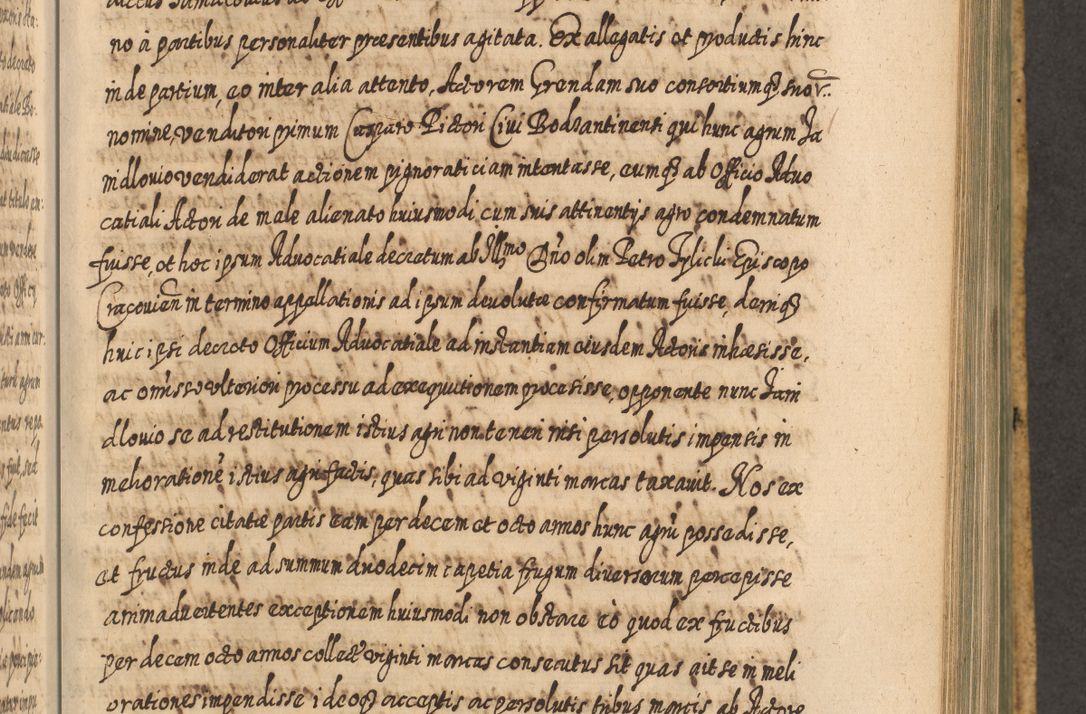 no à partibus personaliter præsentibus agitata. Ex allegatis et productis hinc
inde partium, eo inter alia attento, Actorem Grendam suo consortiumq3 suo
nomine, venditori primum Caspara Pictori Civi Bodzantinensi qui hunc agrum Ja
mdlovio vendiderat actionem pignoratitiam intentasse, eumq3 ab Officio Advo
catiali Actori de male alienato huiusmodi cum suis attinentijs agro condemnatum
fuisse, et hoc ipsum Advocatiale decretum ab Illmo Dno olim Petro Tylicki Episcopo
Cracovien in termino appellationis ad ipsum devolutæ confirmatum fuisse, deniq3
huic ipsi decreto Officium Advocatiale ad instantiam eiusdem Actoris inhæsisse,
ac omisso ulteriori processu ad exequutionem processisse, opponente nunc Jam
dlovio se ad restitutionem istius agri non teneri nisi persolutis impensis in
melioratione istius agri factis, quas sibi ad viginti marcas taxavit. Nos ex
confessione citatæ partis eam per decem et octo annos hunc agrū possedisse,
et fructus inde ad summum duodecim capetia frugum diversorum percepisse
animadvertentes exceptionem huiusmodi non obstare eò quod ex fructibus
per decem octo annos collectis viginti marcas consecutus sit quas ait se in meli
orationes impendisse ideoq3 acceptis ac persolutis tribus marcis ab Actore